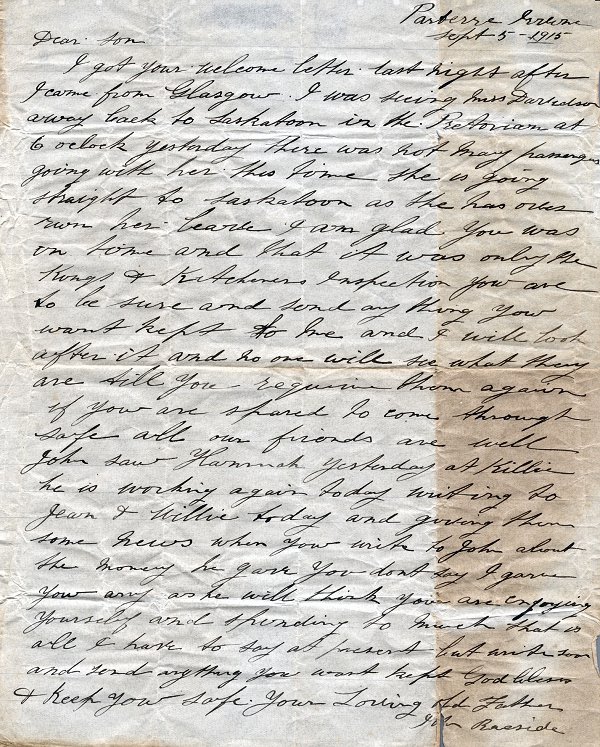 Parterre Irvine
Sept 5 - 1915
Dear Son
I got your welcome letter last night after
I came from Glasgow. I was seeing Miss Davidson
away back to Saskatoon in the Pretorian at
6 oclock yesterday there was not many passengers
going with her this time she is going
straight to Saskatoon as she has over
run her leave I am glad you was
on time and that it was only the
Kings & Kitcheners Inspection you are
to be sure and send any thing you
want kept to me and I will look
after it and no one will see what they
are till you require them again
if you are spared to come through
safe all our friends are well
John saw Hannah yesterday at Killie
he is working again today writing to
Jean & Willie today and giving them
some news when you write to John about
the money he gave you dont say I gave
you any as he will think you are enjoying
yourself and spending to much that is
all I have to say at present but write soon
and send anything you want kept God bless
& Keep you safe. Your Loving Old Father
Wm Raeside